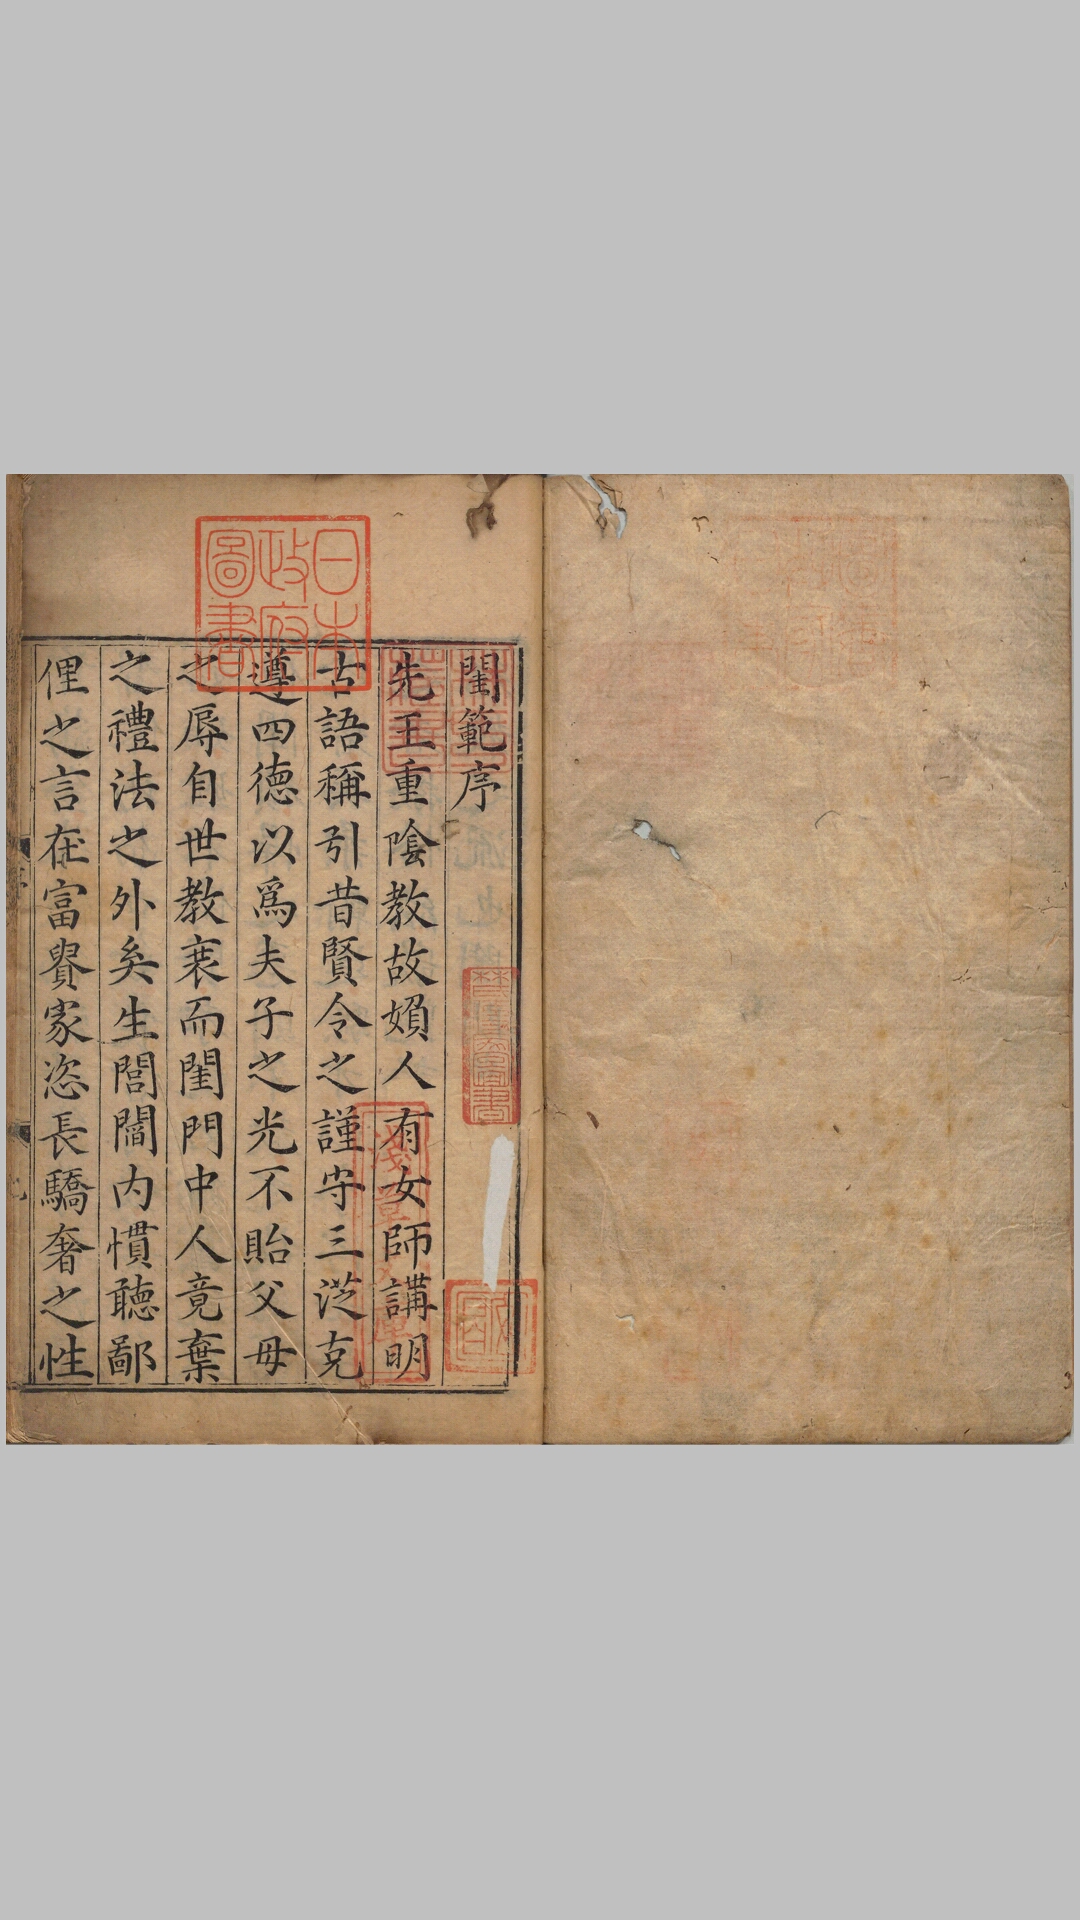 閨範序
先王重陰教故嬪人有女師講明
古語稱引昔賢令之謹守三從克
遵四德以爲夫子之光不貽父母
之辱自世教衰而閨門中人竟棄
之禮法之外矣生閭閻內慣聽鄙
俚之言在富貴家恣長驕奢之性
日本
政府
圖書